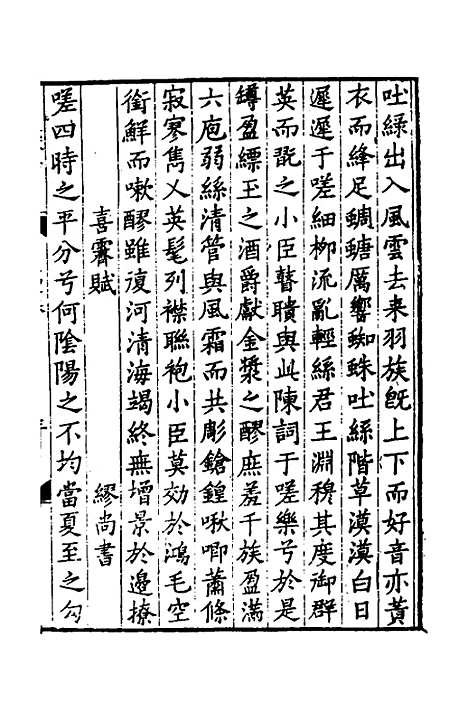 吐綠出入風雲去来羽族既上下而好音亦黃
衣而絳足蜩螗厲響蜘蛛吐絲階草漠漠白日
遲遲于嗟細柳流亂輕絲君王淵穆其度御群
英而翫之小臣瞽聵與此陳詞于嗟樂兮於是
罇盈縹玉之酒爵獻金漿之醪庶羞千族盈滿
六庖弱絲清管與風霜而共彫鎗鍠啾唧蕭條
寂寥雋乂英髦列襟聯袍小臣莫効於鴻毛空
銜鮮而嗽醪雖復河清海竭終無增景於邊撩
喜霽賦 繆尚書
嗟四時之平分兮何陰陽之不均當夏至之勾